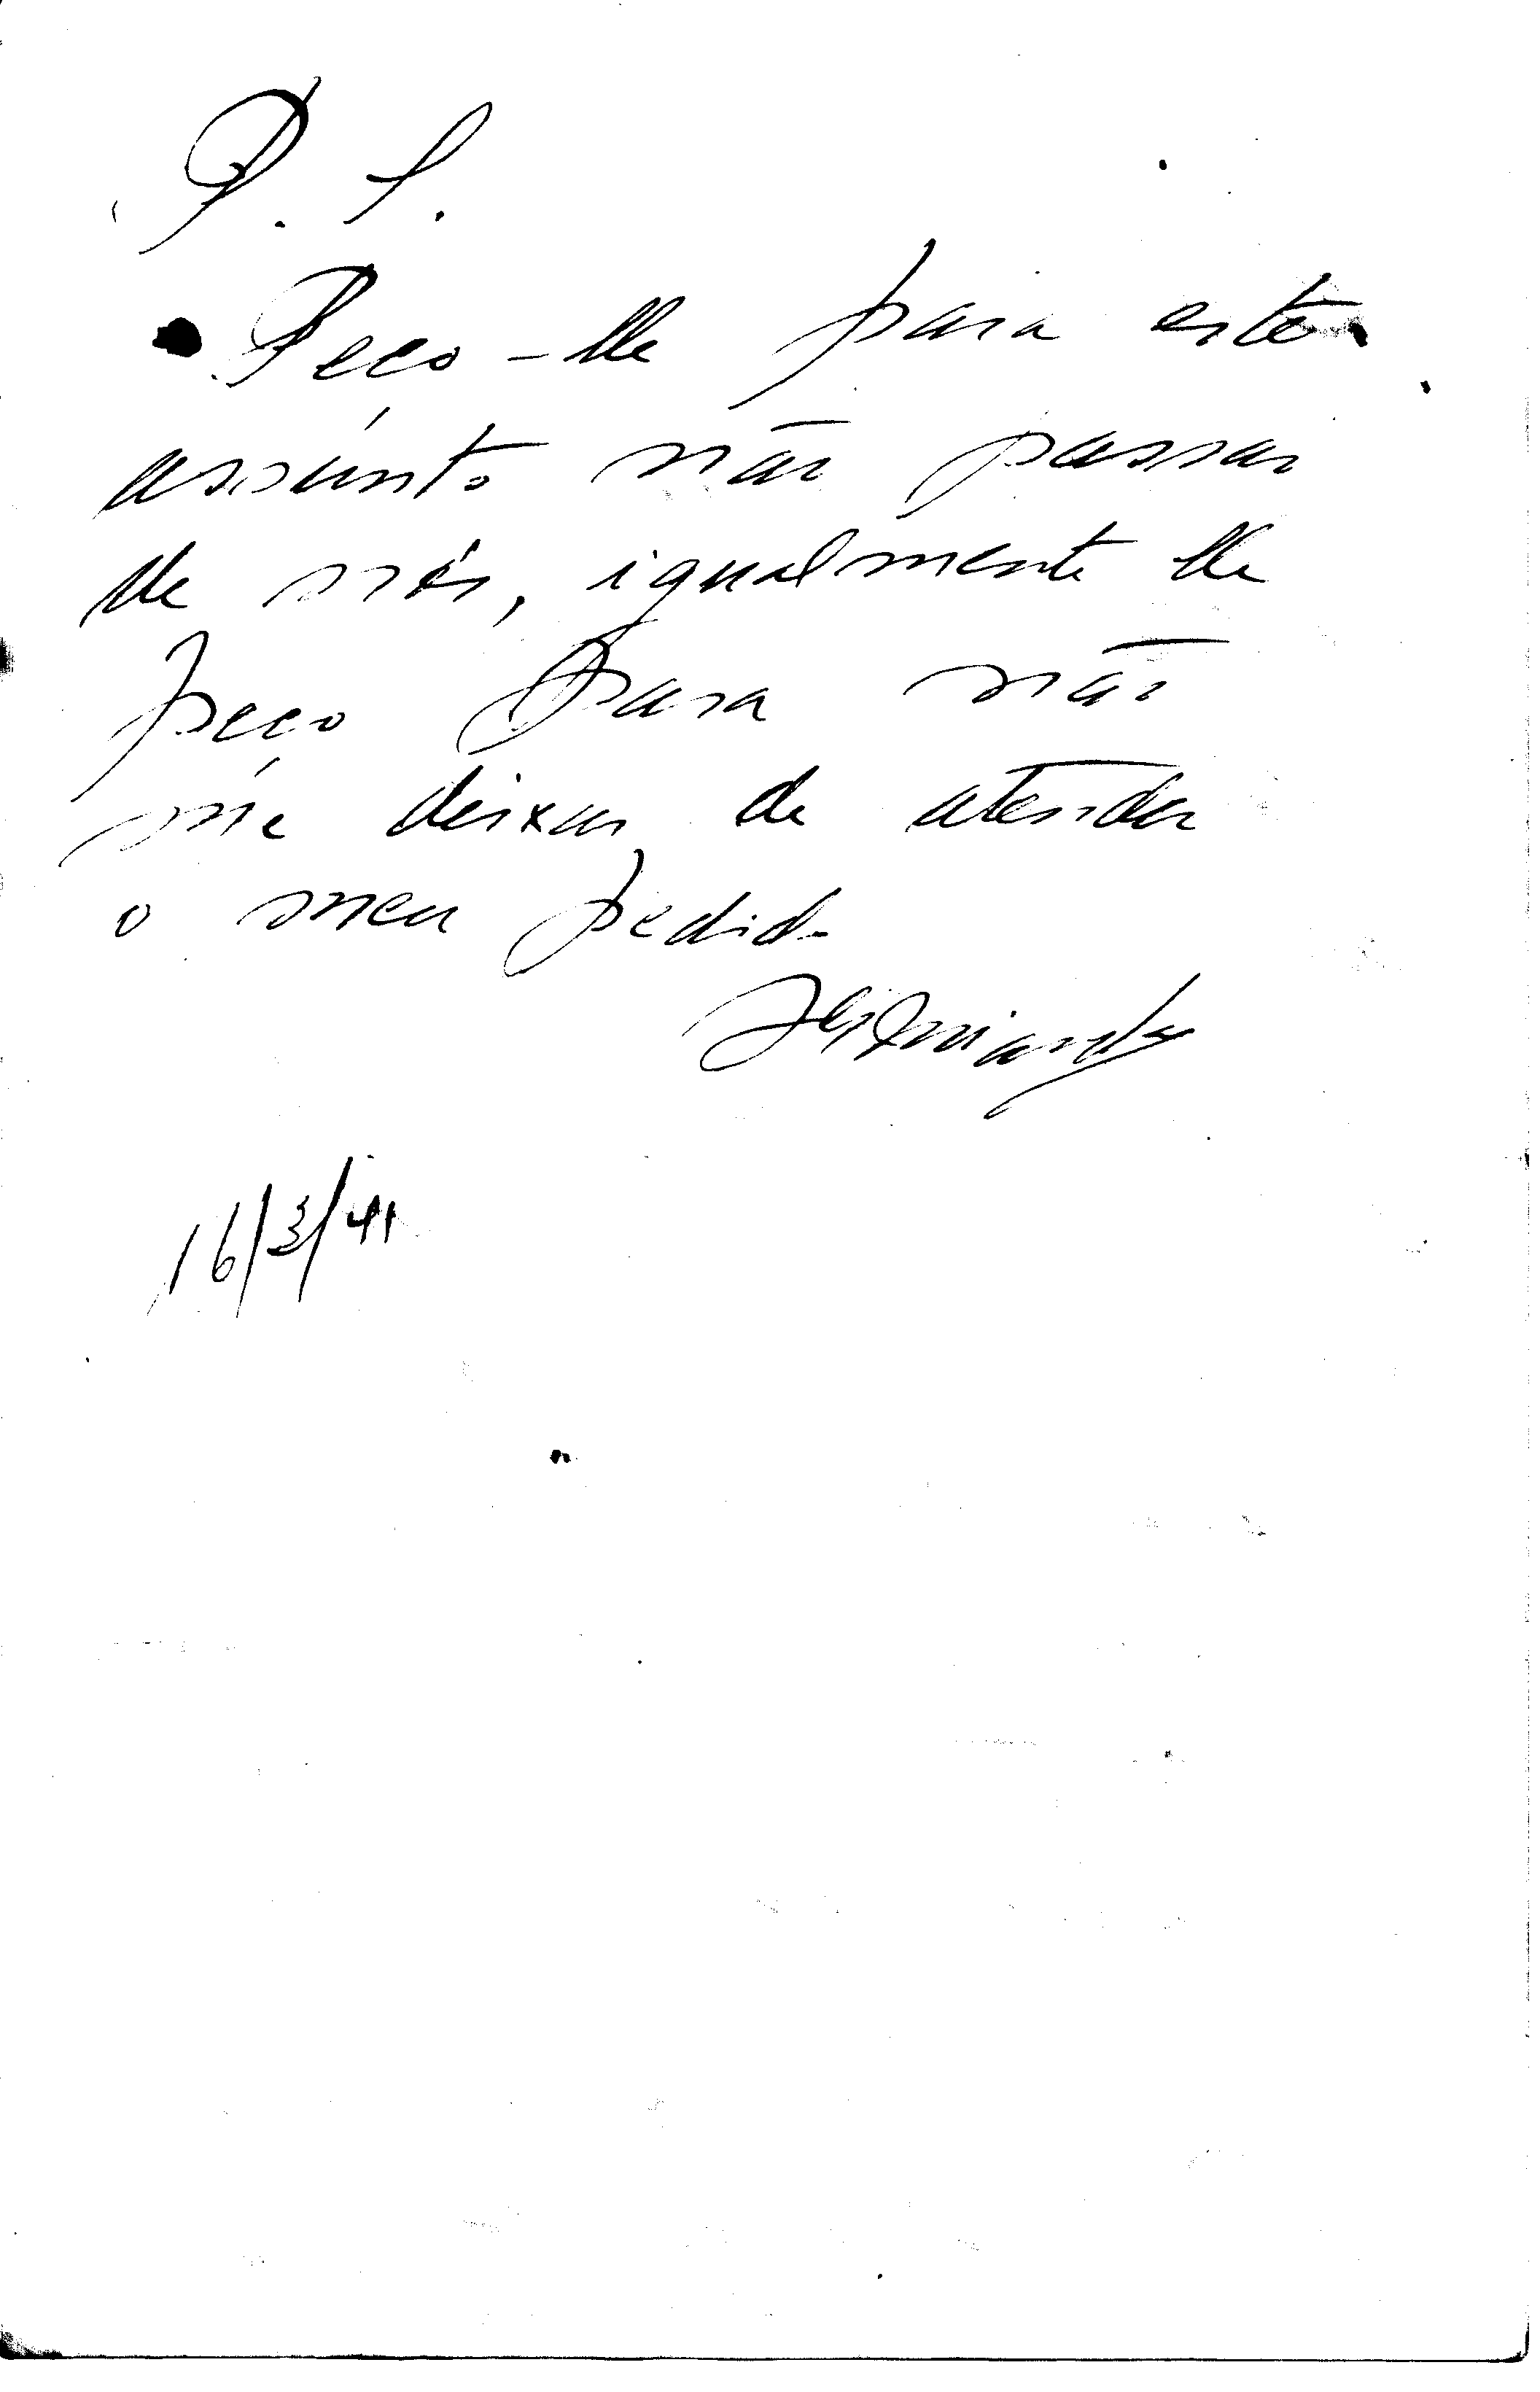 P. S.
Peço-lhe para este
assunto não passar
de nós, igualmente lhe
peço para não
me deixar de atender
o meu pedido
16/3/41